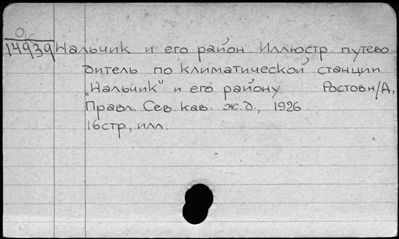 О
14939 Нальчик и его район Иллюстр. путево
дитель по климатической станции
„Нальчик" и его району Ростов н/Д,
Правл. Сев. кав. ж.д., 1926.
16 стр, илл.